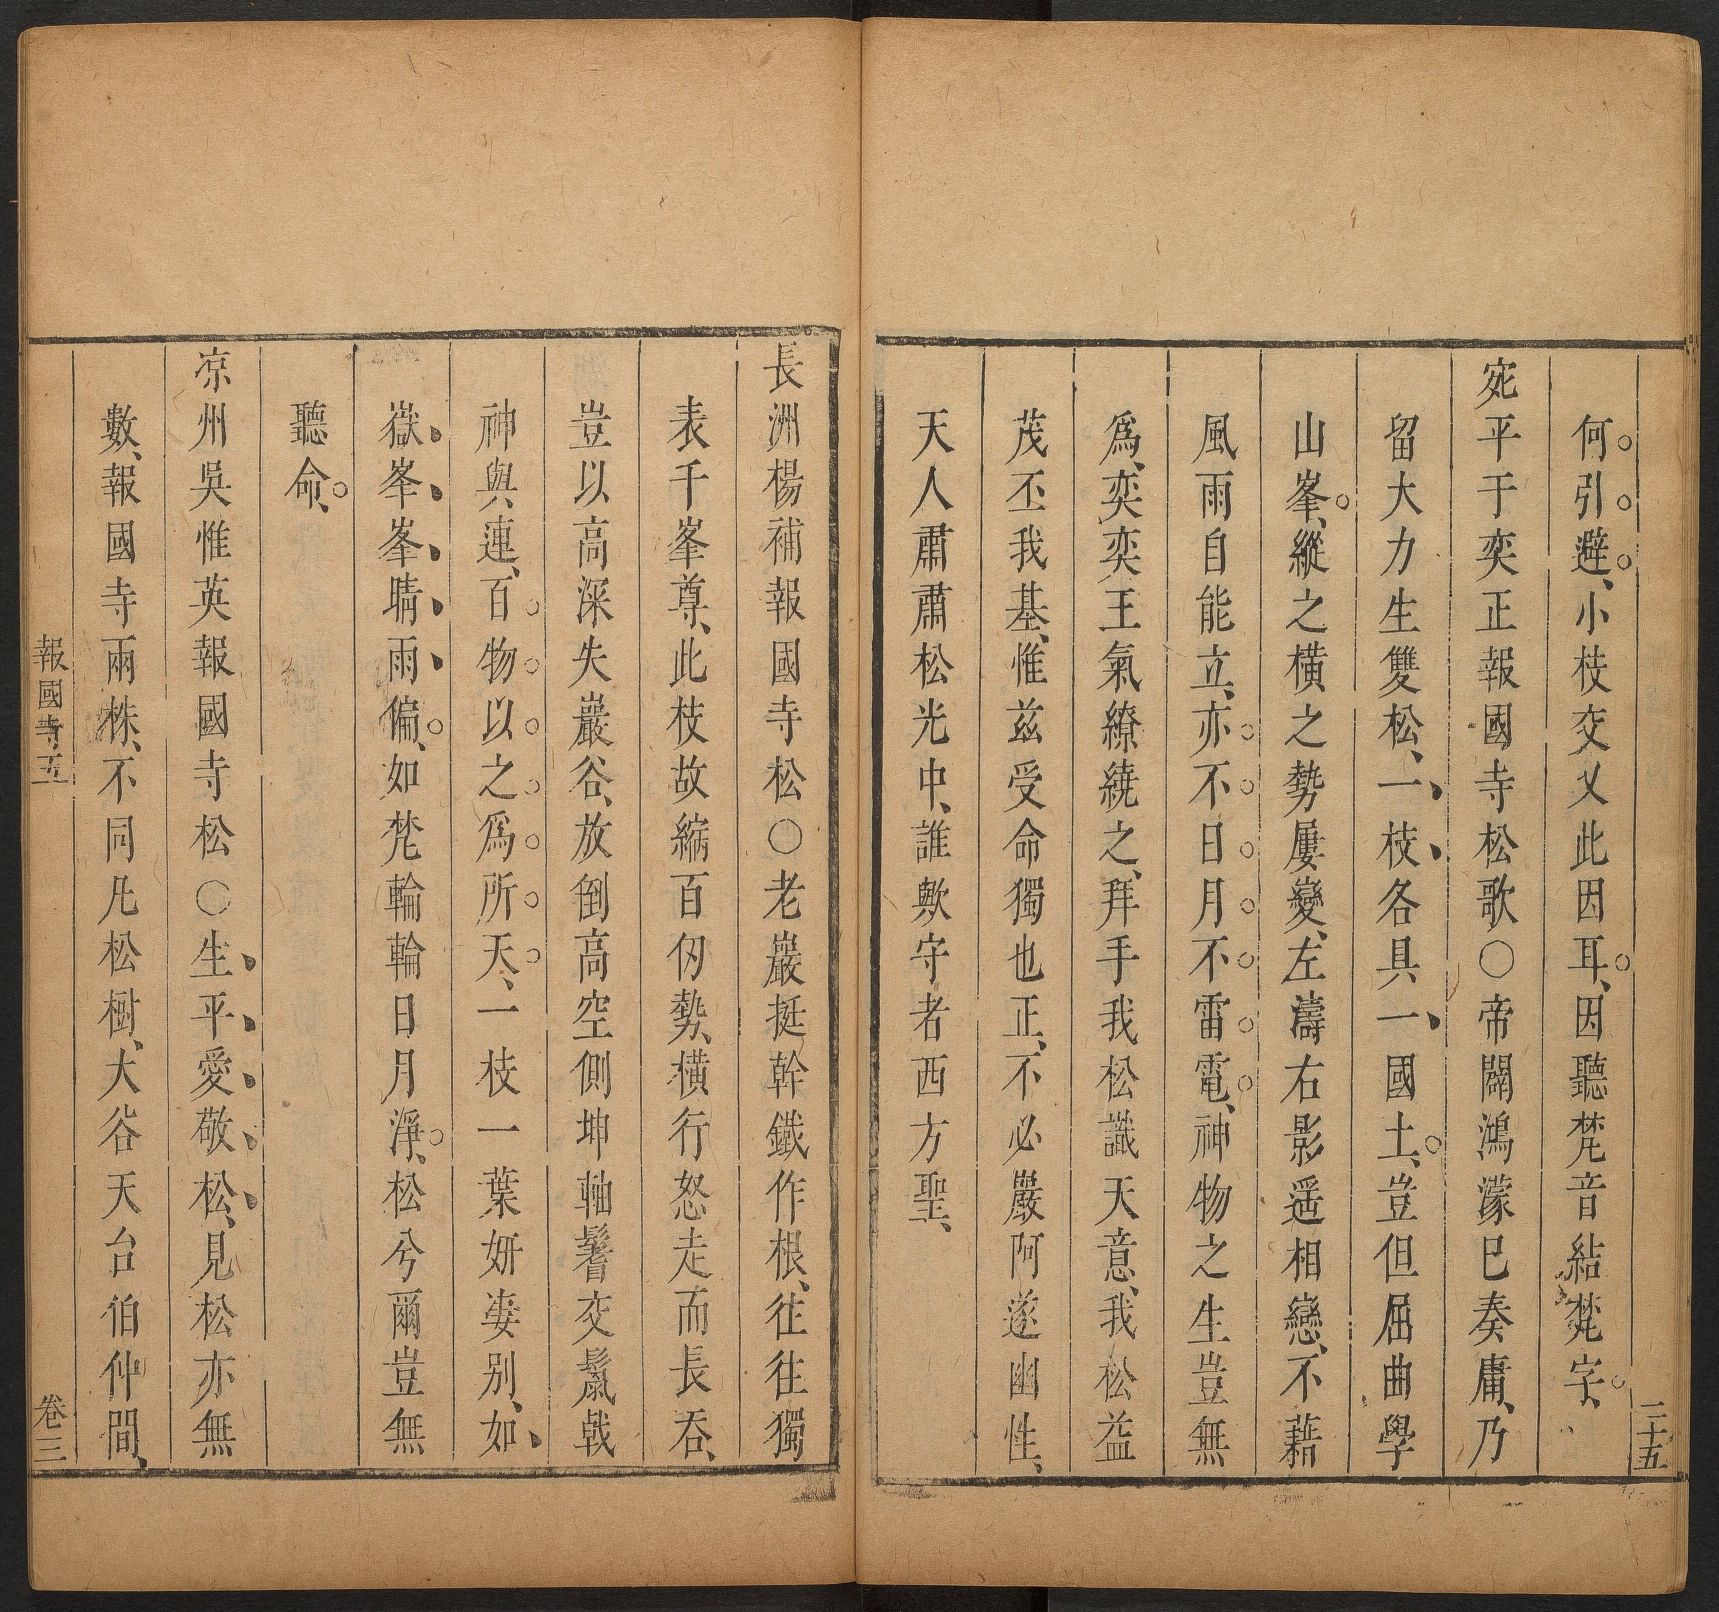 二十五
何引避、小枝交乂此因耳、因聽梵音結梵字、
宛平于奕正報國寺松歌○帝闢鴻濛巳奏庸、乃
留大力生雙松、一枝各具一國土、豈但屈曲學
山峯、縱之橫之勢屢變、左濤右影遥相戀、不藉
風雨自能立、亦不日月不雷電、神物之生豈無
爲、奕奕王氣繚繞之、拜手我松讖天意、我松益
茂丕我基、惟兹受命獨也正、不必嚴阿遂幽性、
天人肅肅松光中、誰歟守者西方聖、
長洲楊補報國寺松○老巖挺幹鐵作根、往往獨
表千峯尊、此枝故縮百仭勢、橫行怒走而長吞、
豈以高深失巖谷、放倒高空側坤軸鬐交鬣戟
神與連、百物以之爲所天、一枝一葉妍凄别、如
嶽峯峯晴雨偏、如梵輪輪日月淨、松兮爾豈無
聽命、
凉州吳惟英報國寺松○生平愛敬松、見松亦無
數、報國寺兩株、不同凡松樹、大谷天台伯仲間、
報國寺五
卷三